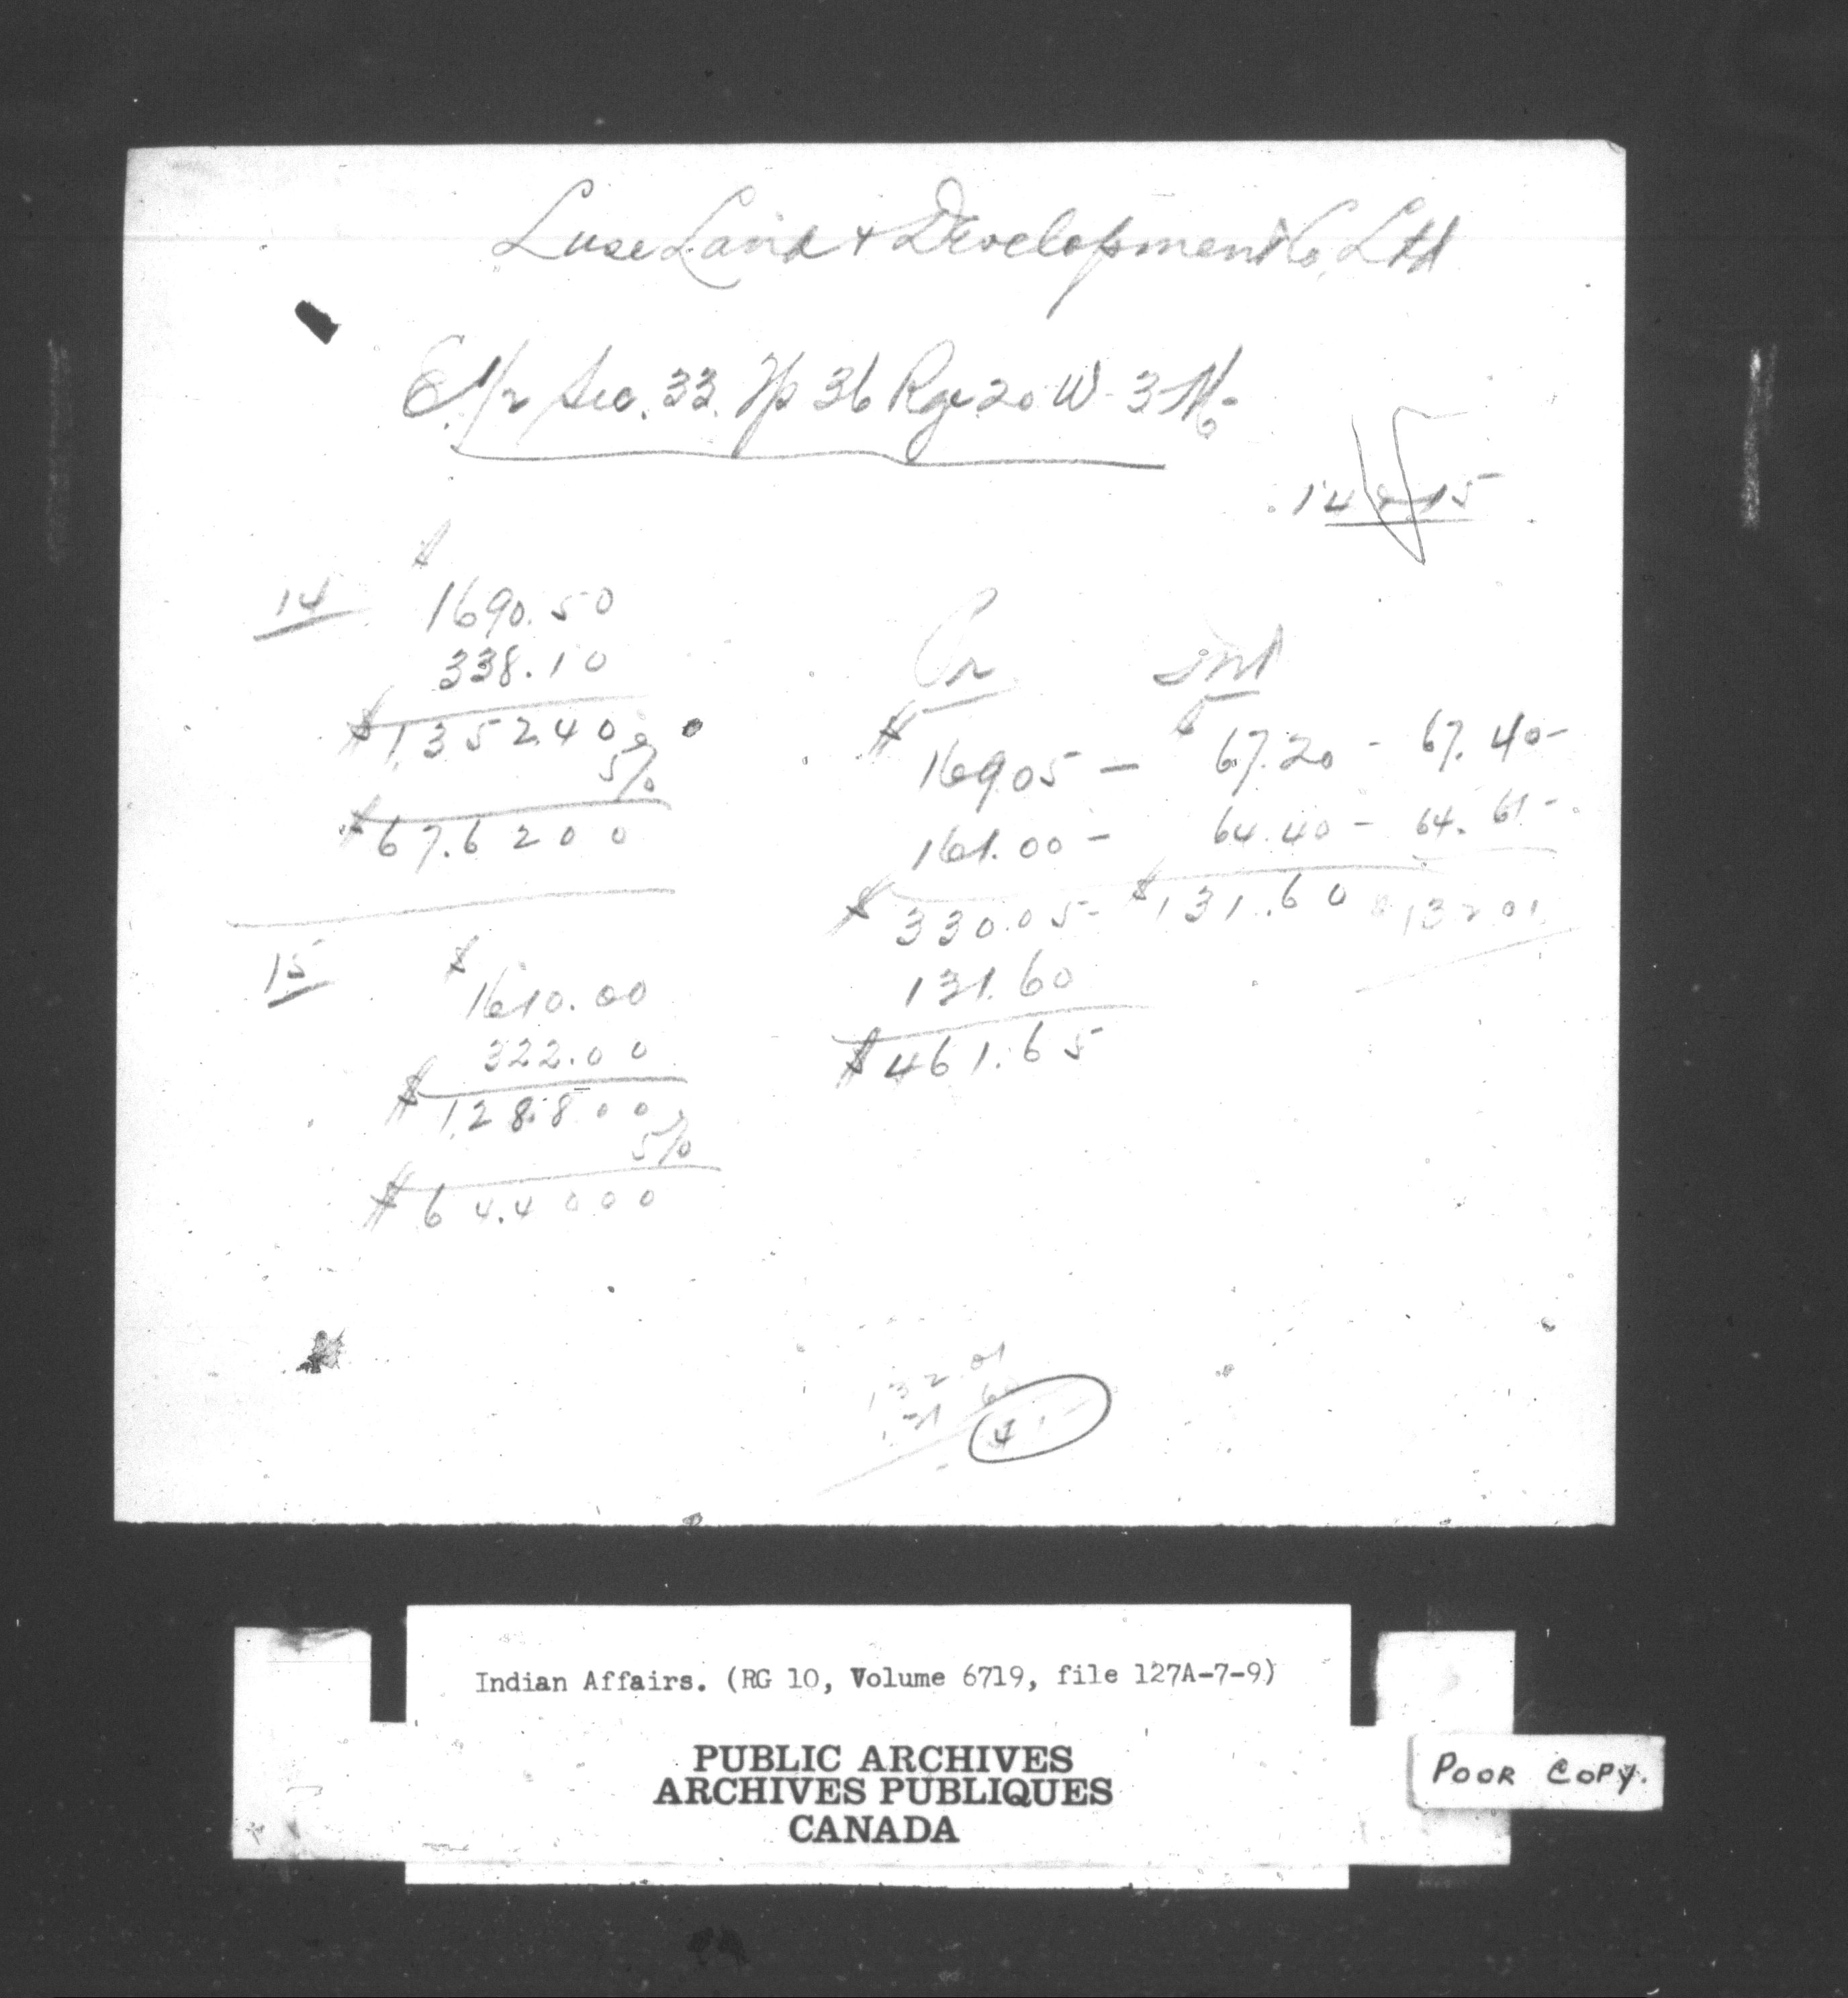 Luse Land & Development Co. Ltd
E 1/2 Sec. 33. Tp 36 Rge 20 W. 3 M.
14 & 15
14
$
1690.50
338.10
$1,352.40
5%
$67.6200
15
$
1610.00
322.00
$1,288.00
5%
$64.4000
Pr Int
$169.05 - $67.20 - 67.40 -
161.00 - 64.40 - 64.61 -
$330.05 - $131.60 $132.01
131.60
$461.65
132.01
131 60
41
Indian Affairs. (RG 10, Volume 6719, file 127A-7-9)
PUBLIC ARCHIVES
ARCHIVES PUBLIQUES
CANADA
POOR COPY.